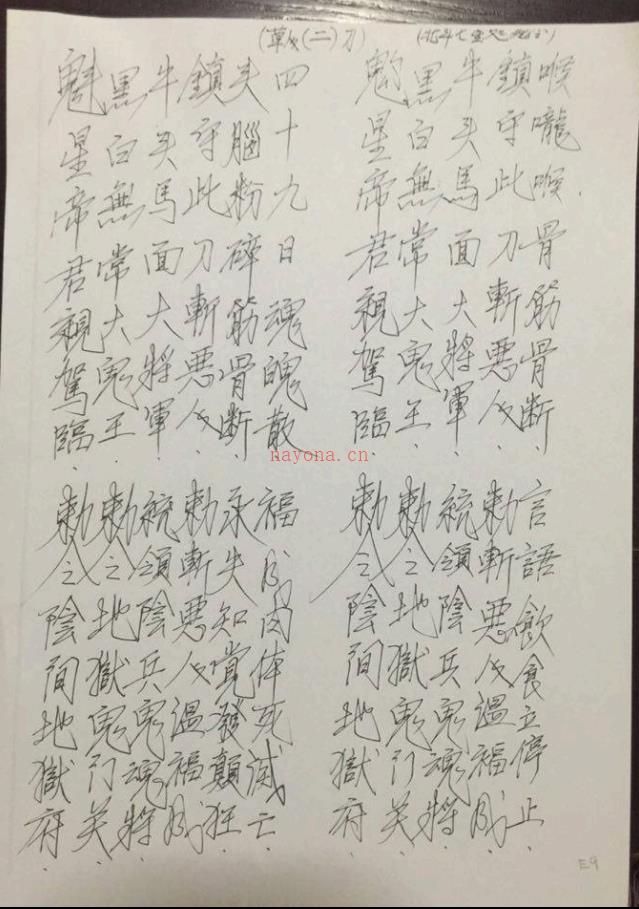 (二)刀
魁星帝君親駕臨.
勅令陰間地獄府.
黑白無常大鬼王.
勅令地獄鬼门关.
牛头馬面大將軍.
統領陰兵鬼魂將.
鎮守此刀斬惡人.
勅斬惡人温福成.
头腦粉碎筋骨断.
永失知覺發顛狂.
四十九日魂魄散.
福成肉体死滅亡.
魁星帝君親駕臨.
勅令陰間地獄府.
黑白無常大鬼王.
勅令地獄鬼门关.
牛头馬面大將軍.
統領陰兵鬼魂將.
鎮守此刀斬惡人.
勅斬惡人温福成.
喉嚨喉骨筋骨断.
言語飲食立停止.
nayona.cn
E9